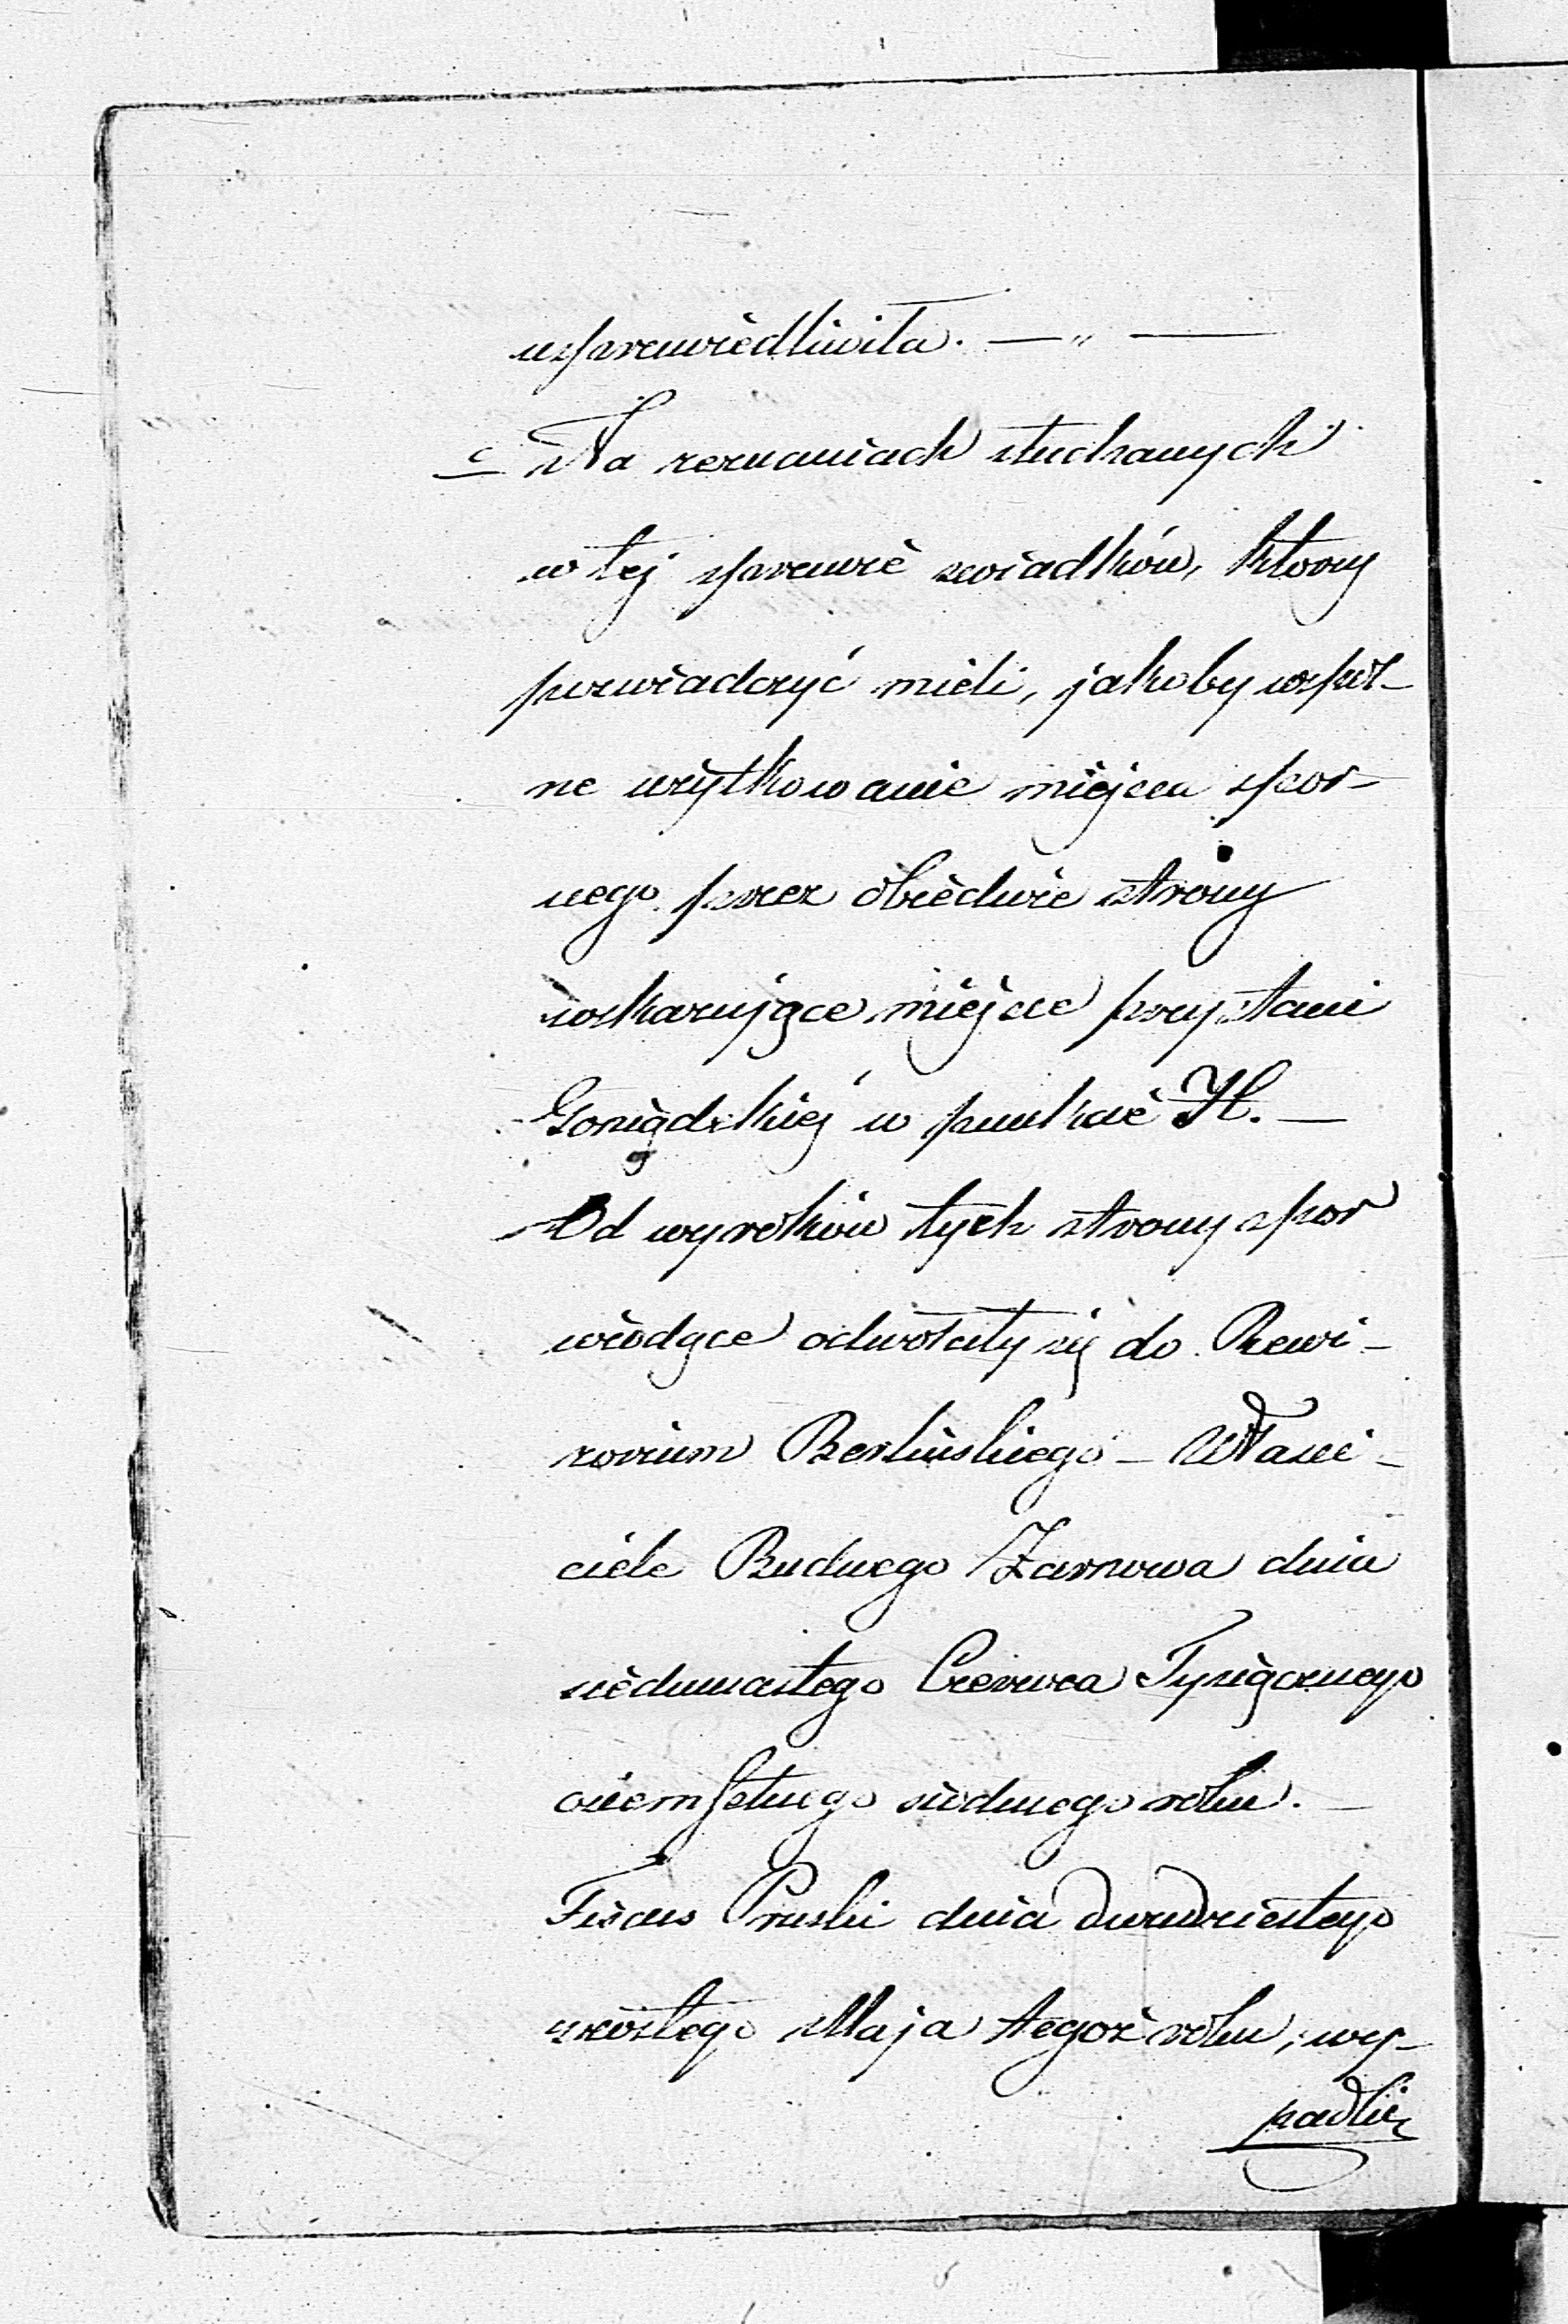 usprawiedliwiła. — „ —
c Na zeznaniach słuchanych
w tej sprawie swiadków, którzy
poswiadczyć mieli, jakoby wspól-
ne użytkowanie miejsca spor-
nego przez obiedwie strony
wskazujące miejsce przystani
Goniądzkiej w punkcie H. —
Od wyroków tych strony spor
wiodące odwołały się do Rewi-
zorium Berlinskiego — Właści-
ciele Budnego Żarnowa dnia
siedmnastego Czerwca Tysiącznego
ośemsetnego siodmego roku. —
Fiscus Pruski dnia dwudziestego
szóstego Maja tegoż roku, wy-
padli